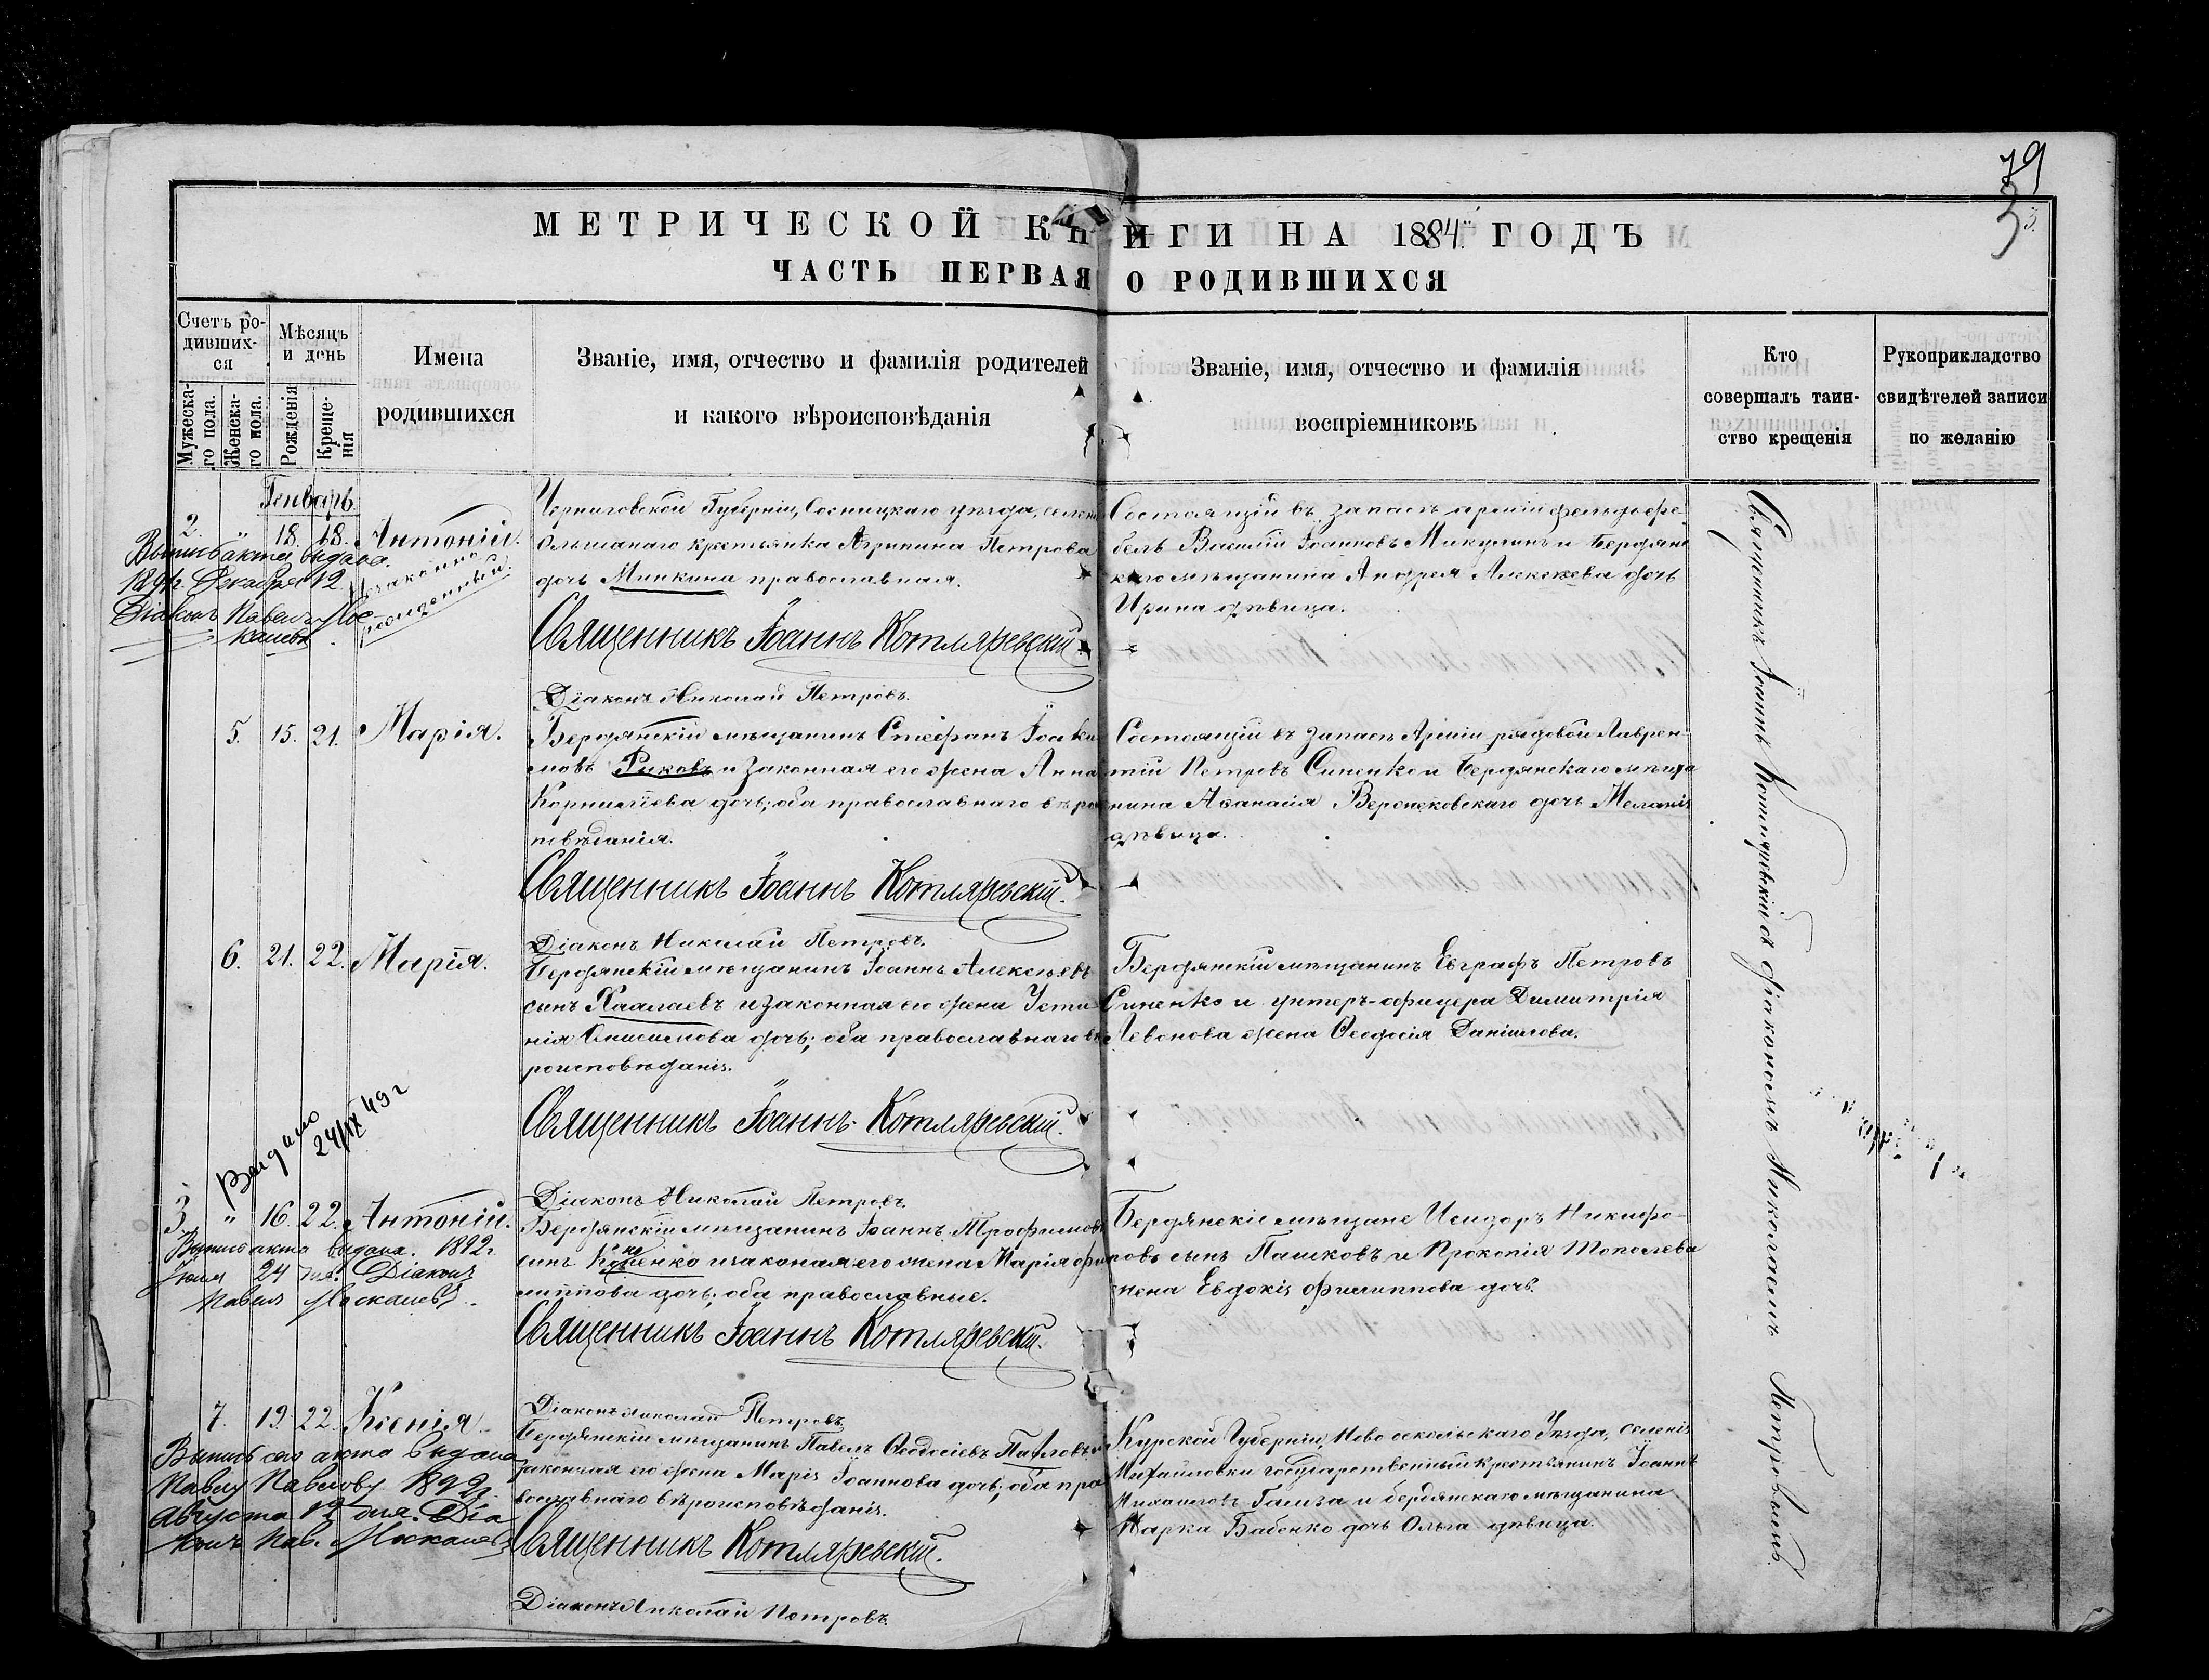 79
3
МЕТРИЧЕСКОЙ КНИГИ НА 1884й ГОДЪ
ЧАСТЬ ПЕРВАЯ О РОДИВШИХСЯ
Счетъ ро-
дивших-
ся
Мужеска-
го пола.
Женска-
го пола.
Мѣсяцъ
и день
Рожденія
Креще-
нія
Имена
родившихся
Званіе, имя, отчество и фамилія родителей
и какого вѣроисповѣданія
Званіе, имя, отчество и фамилія
воспріемниковъ
Кто
совершалъ таин-
ство крещенія
Рукоприкладство
свидѣтелей записи
по желанію
Генварь
2. " 18. 18. Антоній.
незаконно
рожденный.
Выпись акта выдана.
Декабря 12
Діаконъ Павелъ Мос
калевъ
Черниговской Губерніи, Сосницкаго уѣзда, селенія
Ольшанаго крестьянка Агрипина Петрова
дочь Минкина православная.
Священникъ Іоаннъ Котляревскій.
Діаконъ Николай Петровъ.
Состоящій въ запасѣ арміи фельдфе-
бель Василій Іоанновъ Микулинъ и Бердянс
каго мѣщанина Андрея Алексѣева дочь
Ирина дѣвица.
5. 15. 21. Марія.
Бердянскій мѣщанинъ Стефанъ Іоаки
мовъ Рыковъ и законная его жена Анна
Корниліева дочь; оба православнаго вѣрои
повѣданія.
Священникъ Іоаннъ Котляревскій.
Діаконъ Николай Петровъ.
Состоящій въ запасѣ Арміи рядовой Лаврен-
тій Петровъ Синенко и Бердянскаго мѣща
нина Афанасія дочь Меланія
дѣвица.
6. 21. 22. Марія.
Бердянскій мѣщанинъ Іоаннъ Алексѣевъ
сынъ и законная его жена Усти
нія Онисимова дочь; оба православнаго вѣ
роисповѣданія.
Священникъ Іоаннъ Котляревскій.
Діаконъ Николай Петровъ.
Бердянскій мѣщанинъ Евграфъ Петровъ
Синенко и унтеръ-офицера Димитрія
Левонова жена Ѳеодосія Даніилова.
Выдано
24/IX 49 г
3. " 16. 22. Антоній.
Выпись акта выдана. 1892 г.
Іюля 24 дня. Діаконъ
Павелъ Москалевъ.
Бердянскій мѣщанинъ Іоаннъ Трофимовъ
сынъ и законая его жена Марія Фи
липпова дочь; оба православные.
Священникъ Іоаннъ Котляревскій.
Діаконъ Николай Петровъ.
Бердянскіе мѣщане Исидоръ Никифо-
ровъ сынъ Пашковъ и Прокопія Тополева
жена Евдокія Филиппова дочь.
7. 19. 22. Ксенія.
Выпись сего акта выдана
Павлу Павлову 1892 г.
Августа 12 дня. Діа
конъ Пав. Москалевъ
Бердянскій мѣщанинъ Павелъ Ѳеодосіевъ Павловъ и
законная его жена Марія Іоаннова дочь; оба пра
вославнаго вѣроисповѣданія.
Священникъ Котляревскій.
Діаконъ Николай Петровъ.
Курской Губерніи, Ново оскольскаго Уѣзда, селенія
Михайловки государственный крестьянинъ Іоаннъ
Михаиловъ и бердянскаго мѣщанина
Марка Бабенко дочь Ольга дѣвица.
Священникъ Іоаннъ Котляревскій съ діакономъ Николаемъ Петровымъ.